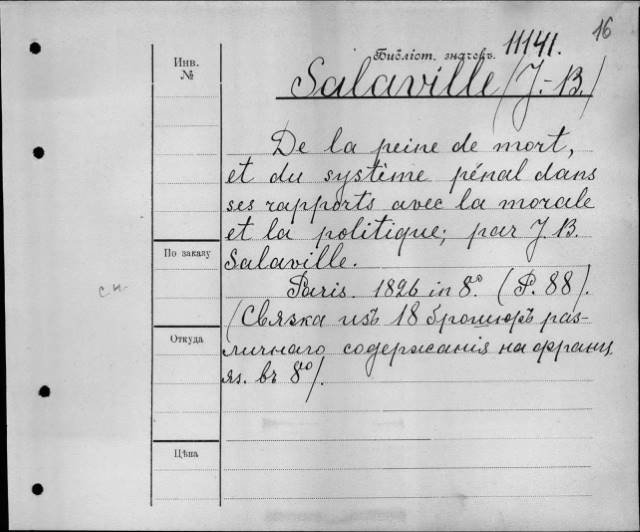 16
Библіот. значекъ. 11141.
Инв.
№
Salaville (J.-B.)
De la peine de mort,
et du système pénal dans
ses rapports avec la morale
et la politique; par J. B.
По заказу
Salaville.
сн.
Paris. 1826 in 8º. (P. 88).
(Связка изъ 18 брошюръ раз-
Откуда
личнаго содержанія на францу
яз. въ 8º).
Цѣна